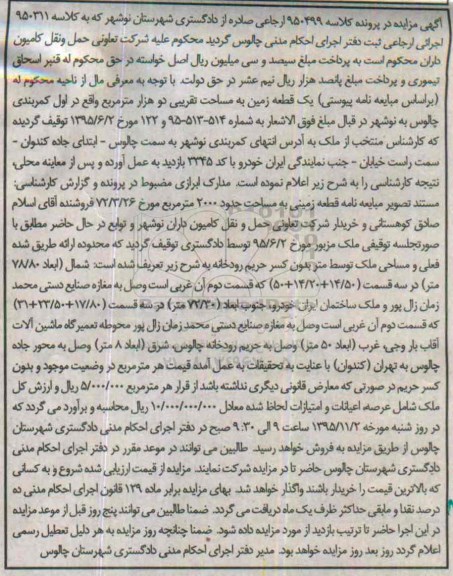 آگهی مزایده در پرونده کلاسه ۹۵۰۴۹۹ ارجاعی صادره از دادگستری شهرستان نوشهر که به کلاسه ۹۵۰۳۱۱
اجرائی ارجاعی ثبت دفتر اجرای احکام مدنی چالوس گردید محکوم علیه شرکت تعاونی حمل ونقل کامیون
داران محکوم است به پرداخت مبلغ سیصد و سی میلیون ریال اصل خواسته در حق محکوم له قنبر اسحاق
تیموری و پرداخت مبلغ پانصد هزار ریال نیم عشر در حق دولت با توجه به معرفی مال از ناحیه محکوم له
(براساس مبایعه نامه پیوستی) یک قطعه زمین به مساحت تقریبی دو هزار مترمربع واقع در اول کمربندی
چالوس به نوشهر در قبال مبلغ فوق الاشعار به شماره ۵۱۴-۵۱۳-۹۵ و ۱۲۲ مورخ ۱۳۹۵/۶/۲ توقیف گردیده
که کارشناس منتخب از ملک به آدرس انتهای کمربندی نوشهر به سمت چالوس - ابتدای جاده کندوان -
سمت راست خیابان - جنب نمایندگی ایران خودرو با کد ۳۳۴۵ بازدید به عمل آورده و پس از معاینه محلی،
نتیجه کارشناسی را به شرح زیر اعلام نموده است: مدارک ابرازی مضبوط در پرونده و گزارش کارشناسی:
مستند تصویر مبایعه نامه قطعه زمینی به مساحت حدود ۲۰۰۰ مترمربع مورخ ۷۲/۳/۲۶ فروشنده آقای اسلام
صادق کوهستانی و خریدار شرکت تعاونی حمل و نقل کامیون داران نوشهر و توابع در حال حاضر مطابق با
صورتجلسه توقیفی ملک مزبور مورخ ۹۵/۶/۲ توسط دادگستری توقیف گردید که محدوده ارائه طریق شده
فعلی و مساحی ملک توسط متر بدون کسر حریم رودخانه به شرح زیر تعریف شده است: شمال (ابعاد ۷۸/۸۰
متر) در سه قسمت (۱۴/۵۰+۱۴/۳۰+۵۰) که قسمت دوم آن غربی است وصل به مغازه صنایع دستی محمد
زمان زال پور و ملک ساختمان ایران خودرو، جنوب ابعاد (۷۲/۳۰ متر) در سه قسمت (۱۷/۸۰+۲۳/۵۰+۳۱)
که قسمت دوم آن غربی است وصل به مغازه صنایع دستی محمد زمان زال پور محوطه تعمیرگاه ماشین آلات
آقاب بار وجی، غرب (ابعاد ۵۰ متر) وصل به حریم رودخانه چالوس، شرق (ابعاد ۸ متر) وصل به محور جاده
چالوس به تهران (کندوان) با عنایت به تحقیقات به عمل آمده قیمت هر مترمربع در وضعیت موجود و بدون
کسر حریم در صورتی که معارض قانونی دیگری نداشته باشد از قرار هر مترمربع ۵/۰۰۰/۰۰۰ ریال و ارزش کل
ملک شامل عرصه اعیانات و امتیازات لحاظ شده معادل ۱۰/۰۰۰/۰۰۰/۰۰۰ ریال محاسبه و برآورد می گردد که
در روز شنبه مورخه ۱۳۹۵/۱۱/۲ ساعت ۹ الی ۹:۳۰ صبح در دفتر اجرای احکام مدنی دادگستری شهرستان
چالوس از طریق مزایده به فروش خواهد رسید. طالبین می توانند در موعد مقرر در دفتر اجرای احکام مدنی
دادگستری شهرستان چالوس حاضر تا در مزایده شرکت نمایند. مزایده از قیمت ارزیابی شده شروع و به کسانی
که بالاترین قیمت را خریدار باشند واگذار خواهد شد. بهای مزایده برابر ماده ۱۲۹ قانون اجرای احکام مدنی ده
درصد نقدا و مابقی حداکثر ظرف یک ماه دریافت می گردد. ضمنا طالبین می توانند پنج روز قبل از موعد مزایده
در این اجرا حاضر تا ترتیب بازدید از مورد مزایده داده شود. ضمنا چنانچه روز مزایده به هر دلیل تعطیل رسمی
اعلام گردد روز بعد روز مزایده خواهد بود. مدیر دفتر اجرای احکام مدنی دادگستری شهرستان چالوس